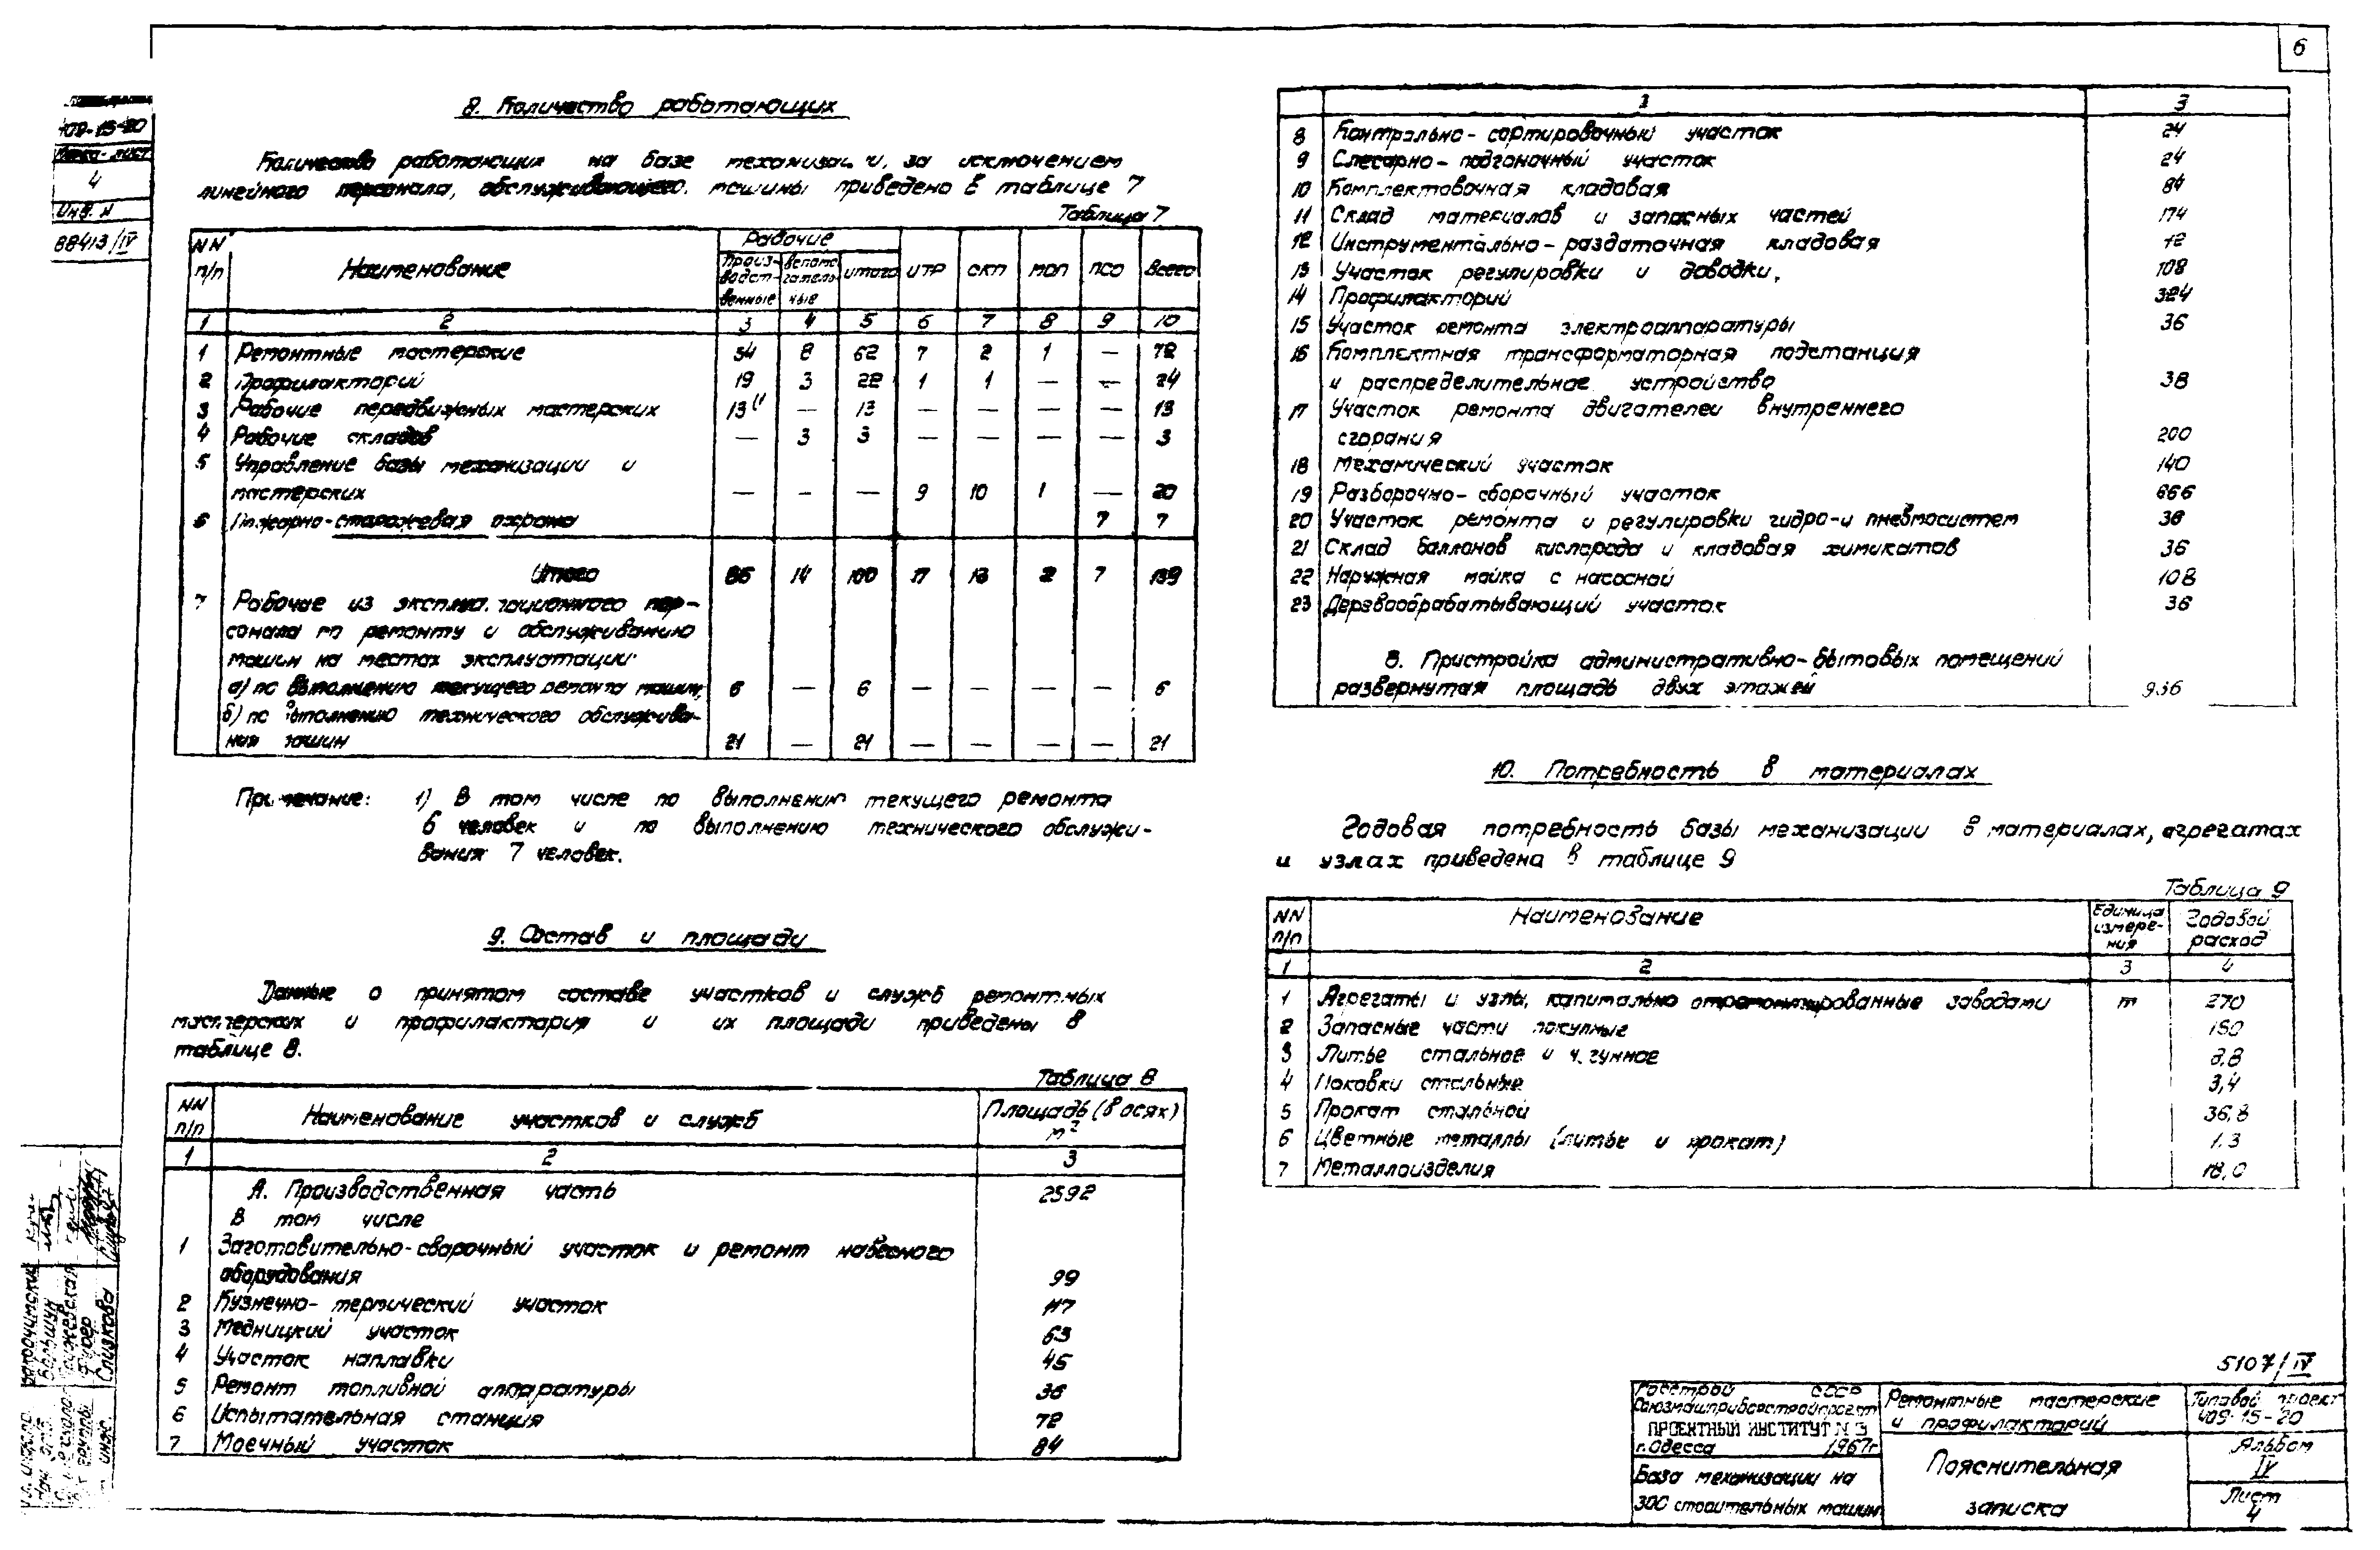 6
409-15-20
Марка-лист
4
Инв. N
88413/IV
8. Количество работающих
Количество работающих на базе механизации, за исключением
линейного персонала, обслуживающего машины приведено в таблице 7
Таблица 7
NN п/п Наименование Рабочие ИТР СКП МОП ПСО Всего
Производственные Вспомогательные Итого
1 2 3 4 5 6 7 8 9 10
1 Ремонтные мастерские 54 8 62 7 2 1 — 72
2 Профилакторий 19 3 22 1 1 — — 24
3 Рабочие передвижных мастерских 13 1) — 13 — — — — 13
4 Рабочие складов — 3 3 — — — — 3
5 Управление базы механизации и
мастерских — — — 9 10 1 — 20
6 Пожарно-сторожевая охрана 7 7
Итого 86 14 100 17 13 2 7 139
7 Рабочие из эксплуатационного пер-
сонала по ремонту и обслуживанию
машин на местах эксплуатации:
а) по выполнению текущего ремонта машин; 6 — 6 — — — — 6
б) по выполнению технического обслужива-
ния машин 21 — 21 — — — — 21
Примечание: 1) В том числе по выполнению текущего ремонта
6 человек и по выполнению технического обслужи-
вания 7 человек.
9. Состав и площади
Данные о принятом составе участков и служб ремонтных
мастерских и профилактория и их площади приведены в
таблице 8.
Таблица 8
NN п/п Наименование участков и служб Площадь (в осях) м²
1 2 3
А. Производственная часть 2592
В том числе
1 Заготовительно-сварочный участок и ремонт навесного
оборудования 99
2 Кузнечно-термический участок 117
3 Медницкий участок 63
4 Участок наплавки 45
5 Ремонт топливной аппаратуры 36
6 Испытательная станция 72
7 Моечный участок 84
2 3
8 Контрольно-сортировочный участок 24
9 Слесарно-подгоночный участок 24
10 Комплектовочная кладовая 84
11 Склад материалов и запасных частей 174
12 Инструментально-раздаточная кладовая 12
13 Участок регулировки и доводки, 108
14 Профилакторий 324
15 Участок ремонта электроаппаратуры 36
16 Комплектная трансформаторная подстанция
и распределительное устройство 38
17 Участок ремонта двигателей внутреннего
сгорания 200
18 Механический участок 140
19 Разборочно-сборочный участок 666
20 Участок ремонта и регулировки гидро-и пневмосистем 36
21 Склад баллонов кислорода и кладовая химикатов 36
22 Наружная мойка с насосной 108
23 Деревообрабатывающий участок 36
В. Пристройка административно-бытовых помещений
развернутая площадь двух этажей 936
10. Потребность в материалах
Годовая потребность базы механизации в материалах, агрегатах
и узлах приведена в таблице 9
Таблица 9
NN п/п Наименование Единица измере-ния Годовой расход
1 2 3 4
1 Агрегаты и узлы, капитально отремонтированные заводами т 270
2 Запасные части покупные 180
3 Литье стальное и чугунное 8,8
4 Поковки стальные 3,4
5 Прокат стальной 36,8
6 Цветные металлы (литье и прокат) 1,3
7 Металлоизделия 18,0
5107/IV
Госстрой СССР
Союзмашприборстройпроект
ПРОЕКТНЫЙ ИНСТИТУТ N 3
г. Одесса 1967г
База механизации на
300 строительных машин
Ремонтные мастерские
и профилакторий
Пояснительная
записка
Типовой проект
409-15-20
Альбом
IV
Лист
4
Слизкова